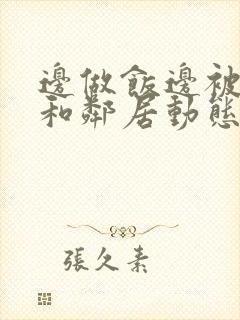 邊做飯邊被
和鄰居動態
張久素